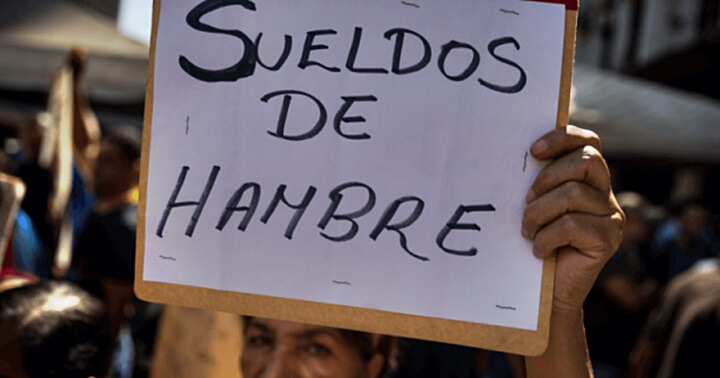 SUELDOS
DE
HAMBRE